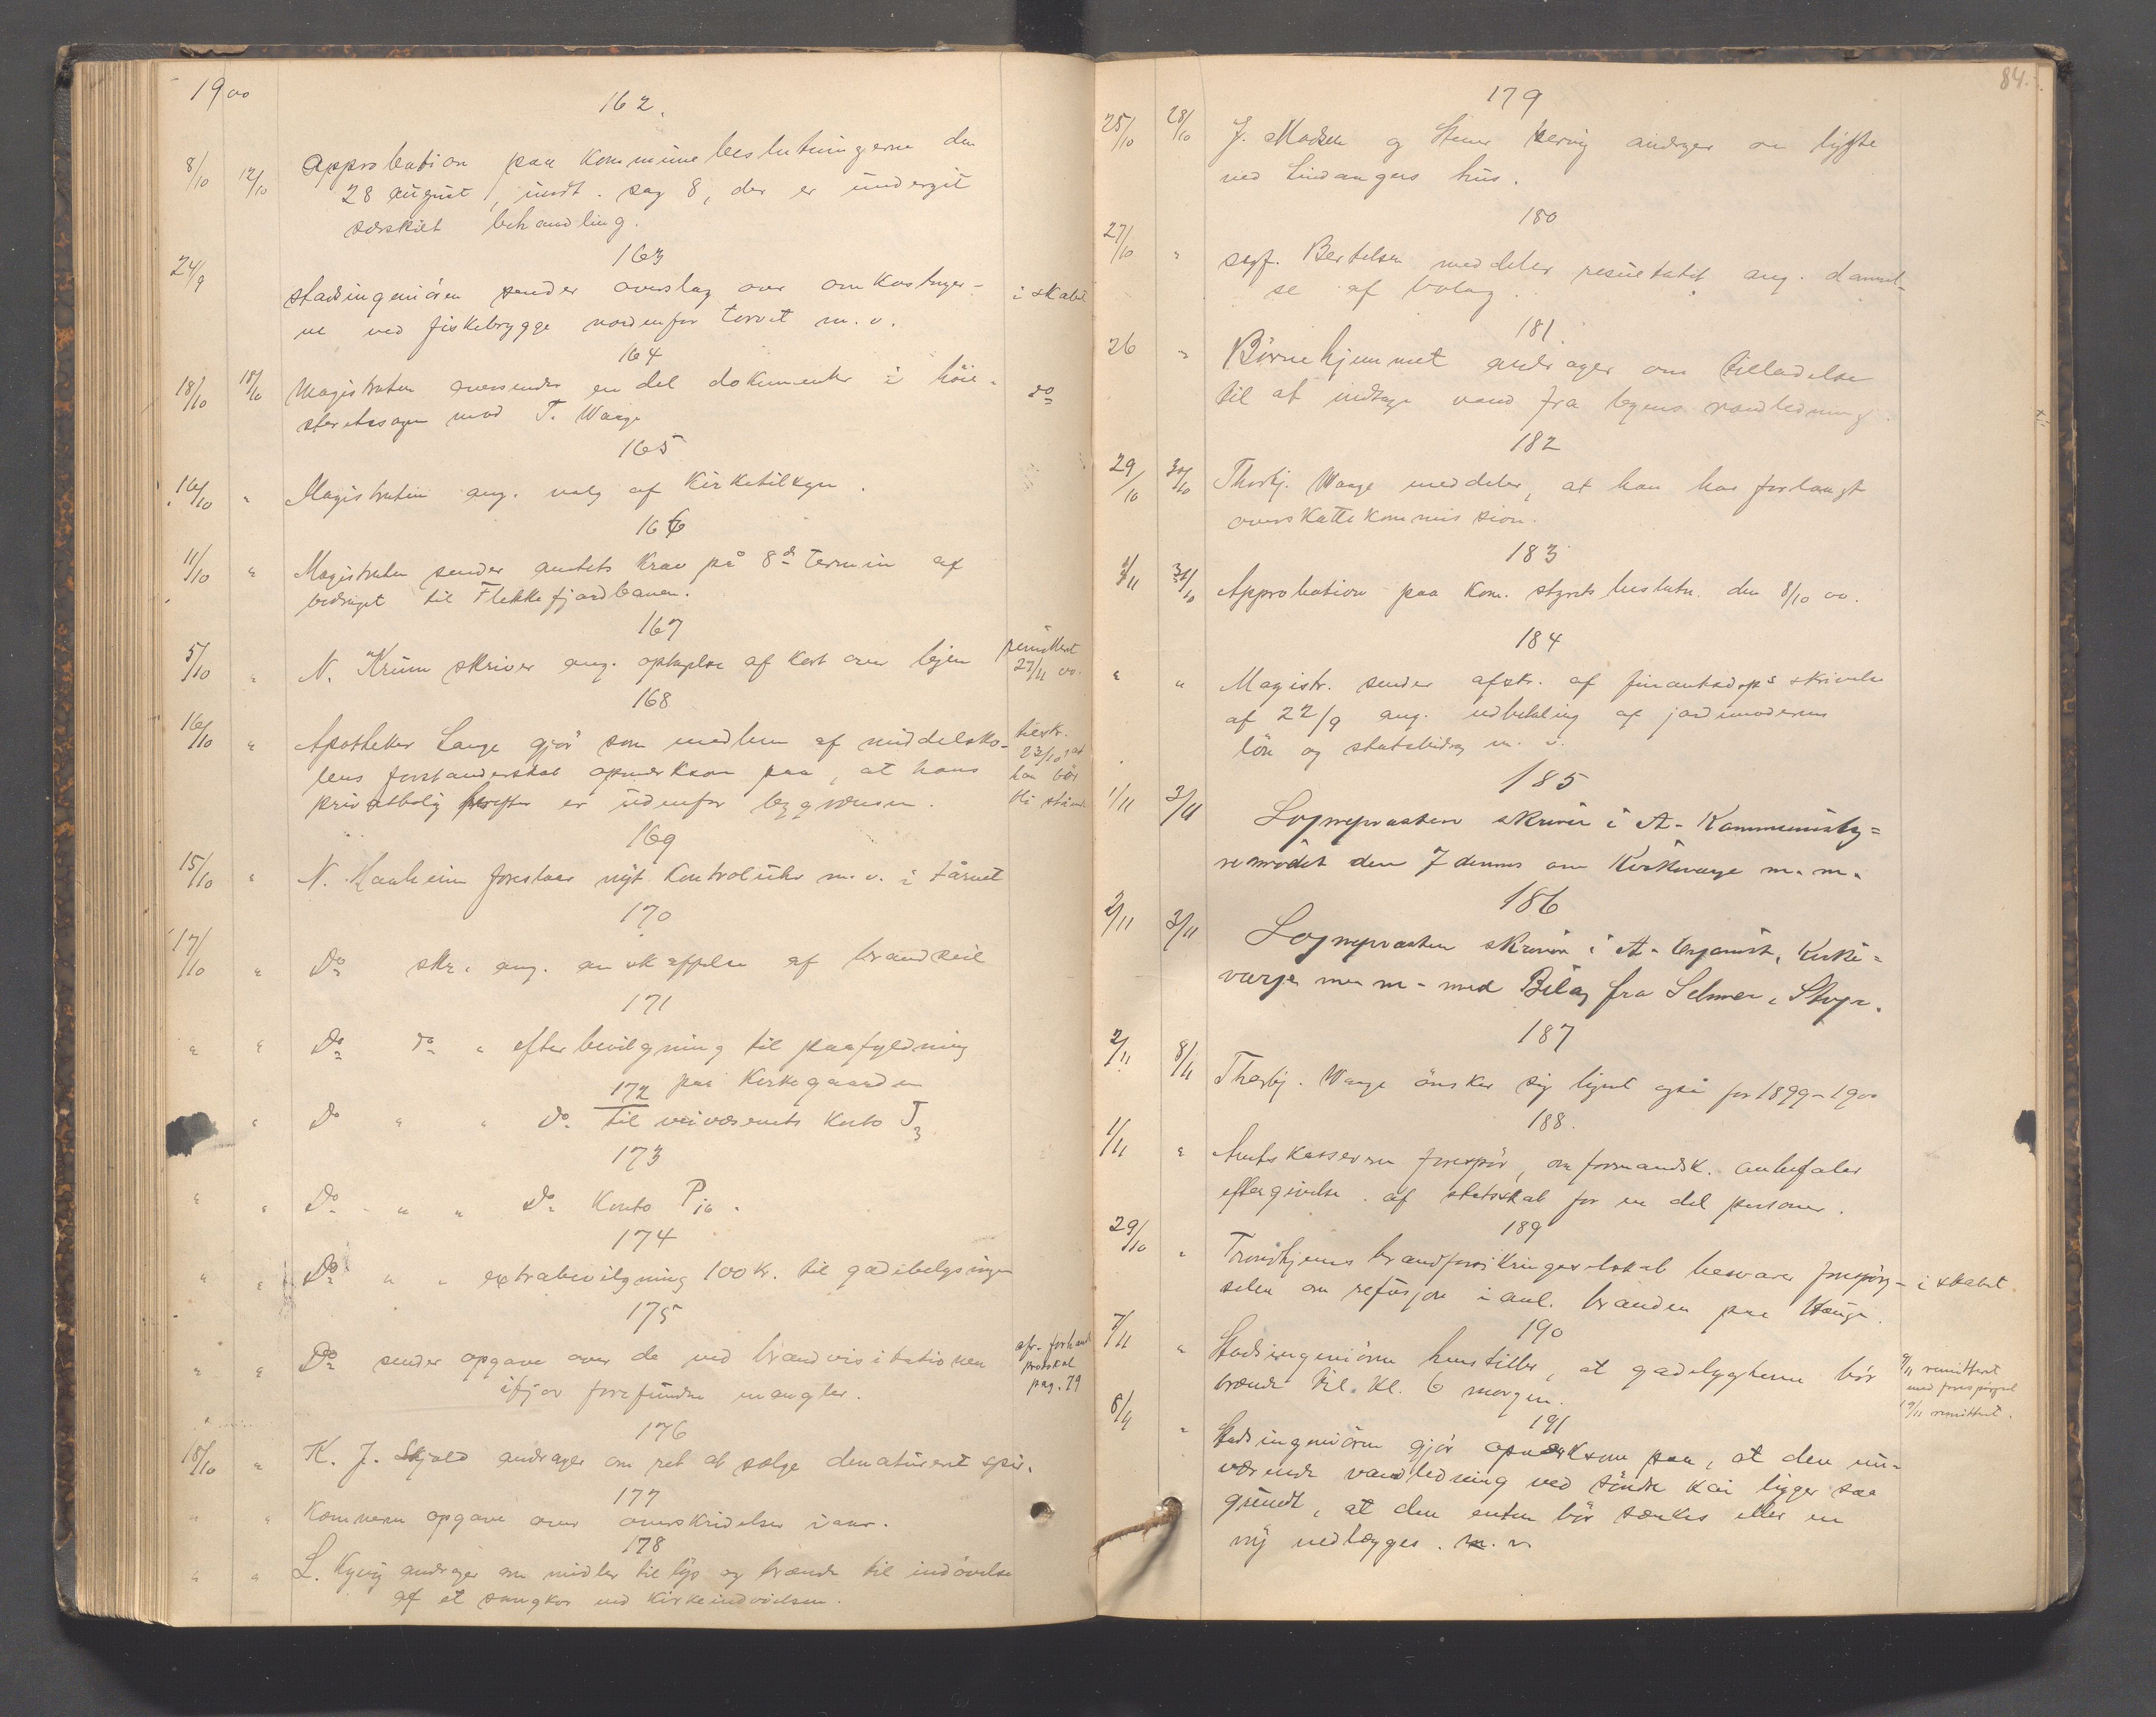 19 00
162.
8/10 12/10 Approbation paa kommunebeslutningerne den
28 august, undt. sag 8, der er undergit
særskilt behandling.
163
24/9 Stadsingeniören sender overslag over omkostninger- i skabet
ne ved fiskebrygge nordenfor torvet m. v.
164
18/10 18/10 Magistraten oversender en del dokumenter i höie- do
steretssagen mod T. Waage
165
16/10 " Magistraten ang. valg af Kirketilsyn.
166
11/10 " Magistraten sender amtets krav på 8de termin af
bidraget til Flekkefjordbanen.
167
5/10 " N. Krum skriver ang. optagelse af kart over byen remittert
27/11 00.
168
16/10 " Apotheker Lange gjör som medlem af middelsko-
lens forstanderskab opmerksom paa, at hans
privatbolig herefter er udenfor bygrænsen.
tilskr.
23/10 at
han bör
bli stående
169
15/10 " N. foreslaar nyt kontroluhr m. v. i tårnet
170
17/10 " Do skr. ang. anskaffelse af brandseil
171
" " Do do " efterbevilgning til paafyldning
paa Kirkegaarden
172
" Do " " do til veivæsenets konto J3
173
" " Do " " do Konto P16.
174
" " Do " " extrabevilgning 100 kr. til gadebelysningen
175
" " Do sender opgave over de ved brandvisitationen
ifjor forefundne mangler.
afr. forhand
protokol
pag. 79
176
18/10 " K. J. Skjold andrager om ret at sælge denatureret spir.
177
" " Kæmneren opgave over overskridelser iaar.
178
" " L. Kyvig andrager om midler til lys og brænde til indövelse
af et sangkor ved kirkeindvielsen.
84.
179
25/10 28/10 J. Madsen og Steinar andrager om lygte
ved Lindangers hus.
180
27/10 " sagf. Bertelsen meddeler resultatet ang. dannel-
se af bolag.
181
26 " Börnehjemmet andrager om tilladelse
til at indtage vand fra byens vandledning.
182
29/10 30/10 Thorbj. Waage meddeler, at han har forlangt
overskattekommission.
183
1/11 31/10 Approbation paa kom. styrets beslutn. den 8/10 00.
184
" " Magistr. sender afskr. af finantsdep's skrivelse
af 22/9 ang. udbetaling af jordmoderens
lön og statsbidrag m. v.
185
1/11 3/11 Sognepræsten skriver i A. Kommunesty-
remödet den 7 dennes om Kirkeværge m. m.
186
2/11 3/11 Sognepræsten skriver i A. Organist, Kirke-
værge m. m. med Bilag fra Selmer,
187
2/11 8/11 Thorbj. Waage önsker sig lignet også for 1899-1900
188.
1/11 " Amtskassereren forespör, om formandsk. anbefaler
eftergivelse af statsskat for en del personer.
189
29/10 " Trondhjems brandforsikringsselskab besvarer forespörg- i skabet
selen om refusjon i anl. branden paa Hauge.
190
7/11 " Stadsingeniören henstiller, at gadelygterne bör
brænde til kl. 6 morgen.
9/11 remittert
med forespörgsel
19/11 remittert.
191
8/11 " Stadsingeniören gjör opmærksom paa, at den nu-
værende vandledning ved söndre kai ligger saa
grundt, at den enten bör sænkes eller en
ny nedlægges. m. v.